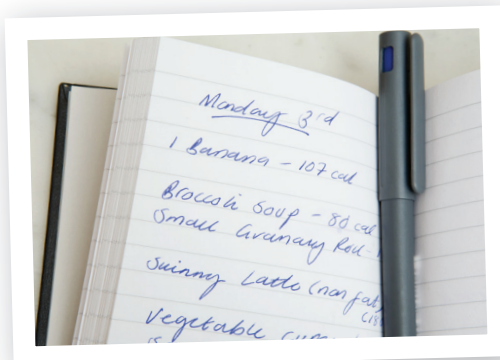 Monday 3rd
1 Banana - 107 cal
Broccoli Soup - 80 cal
Small Granary Roll -
Skinny Latte (non fat)
Vegetable